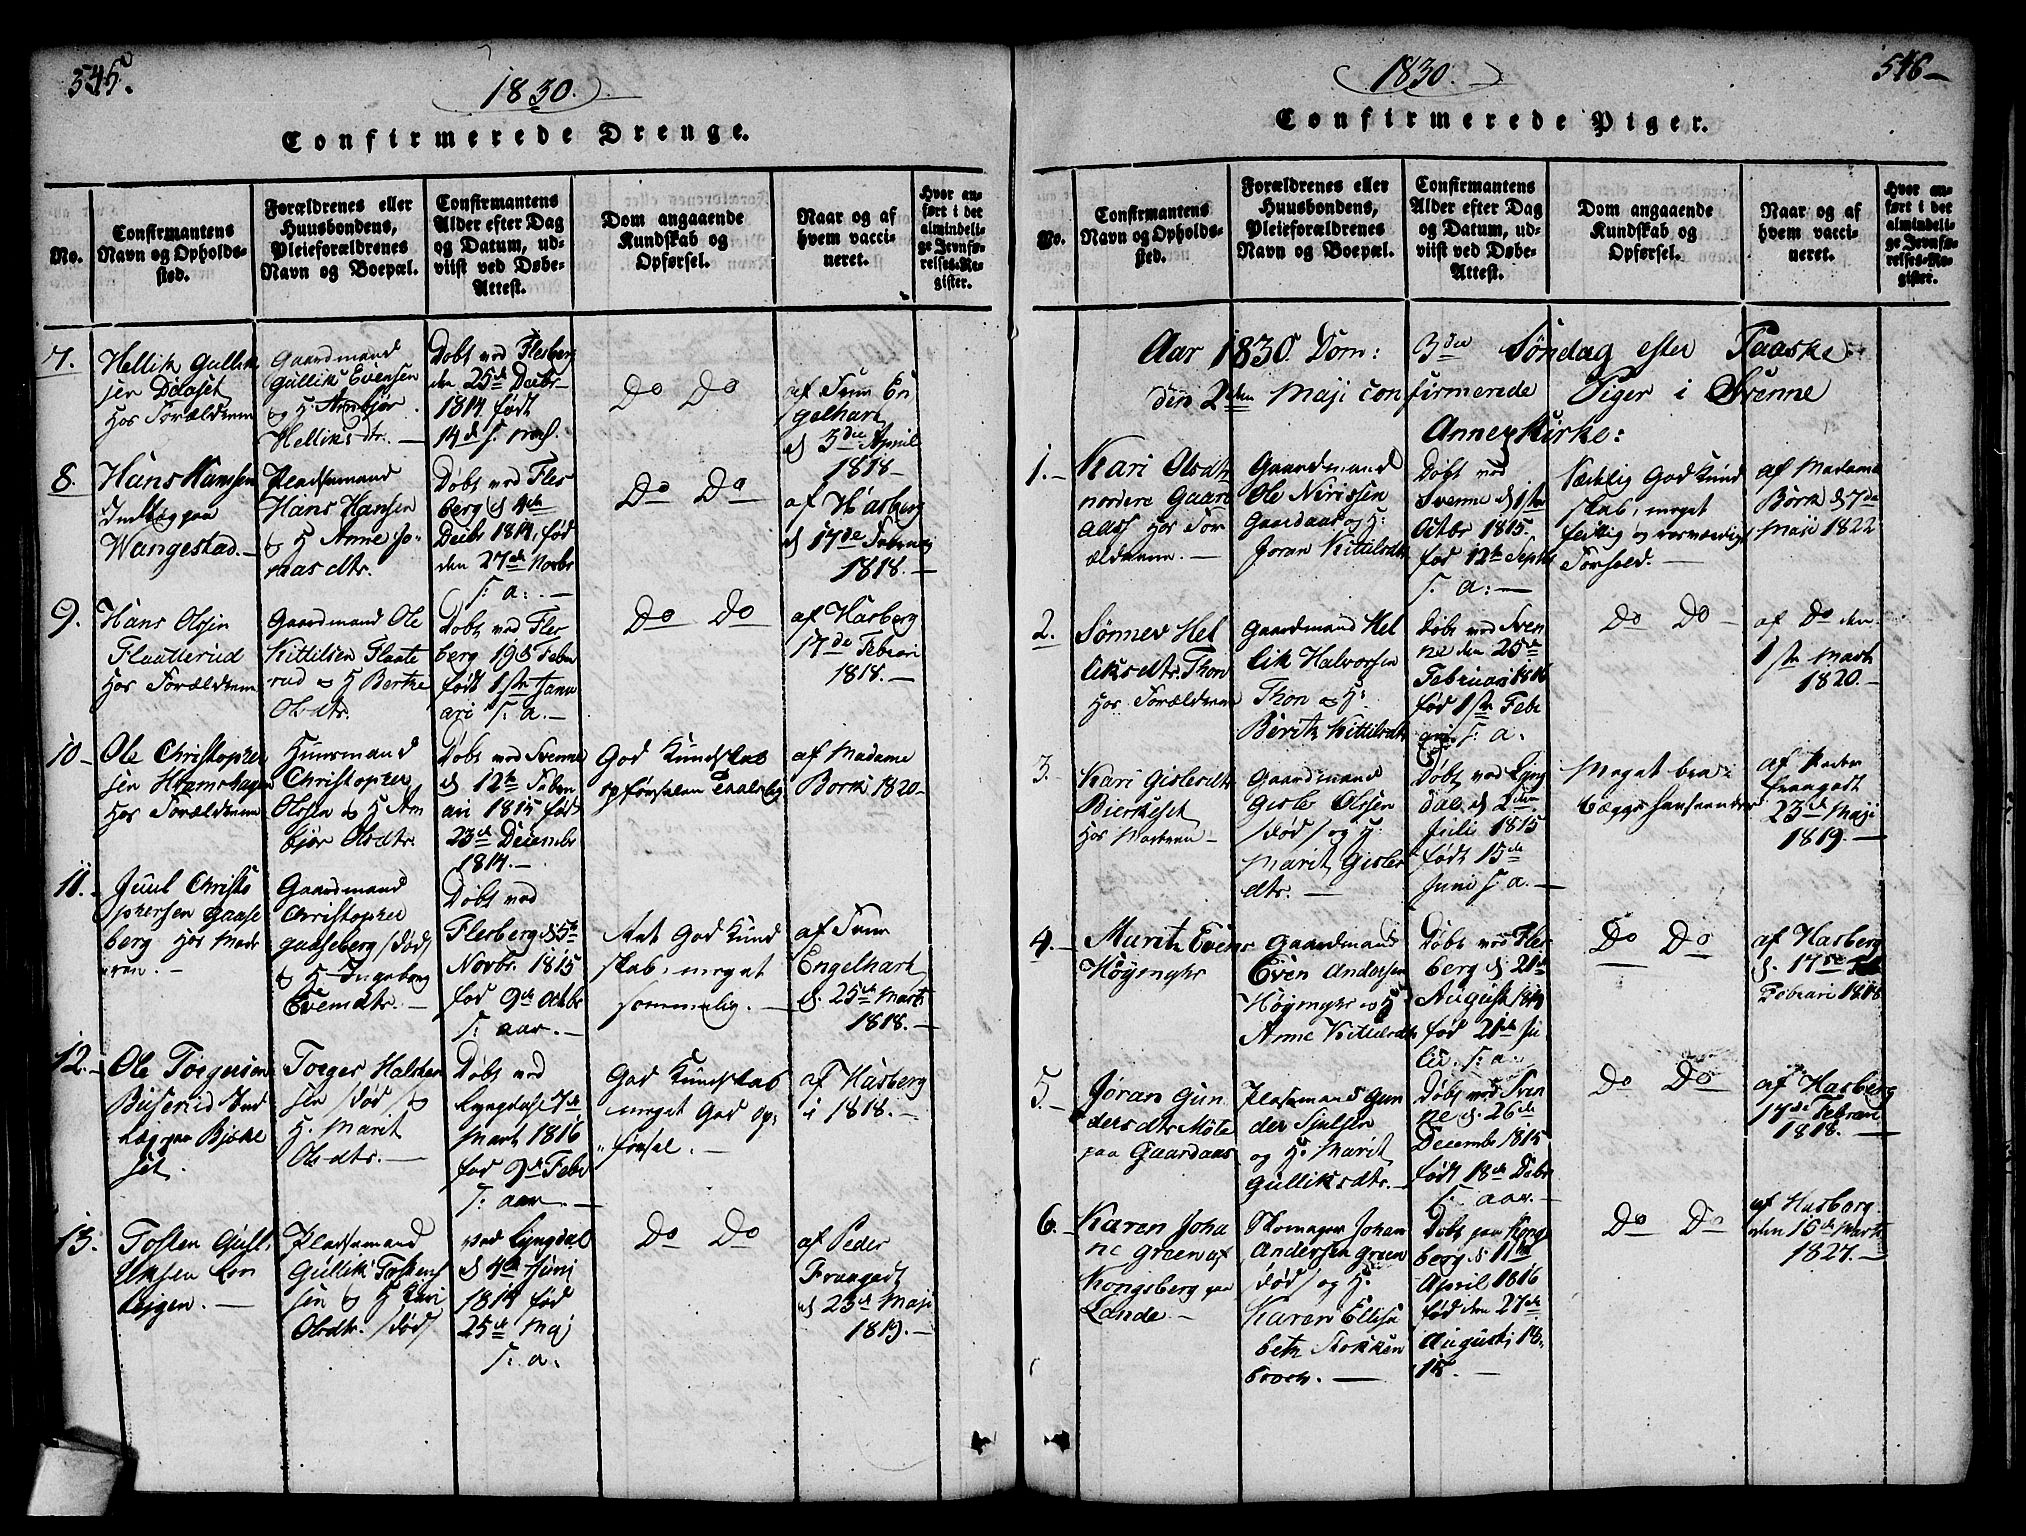 545.
1830.
Confirmerede Drenge.
No.
Confirmantens
Navn og Opholds-
sted.
Forældrenes eller
Huusbondens,
Pleieforældrenes
Navn og Boepæl.
Confirmantens
Alder efter Dag
og Datum, ud-
viist ved Døbe-
Attest.
Dom angaaende
Kundskab og
Opførsel.
Naar og af
hvem vacci-
neret.
Hvor an-
ført i det
almindeli-
ge Jevnfø-
relses-Re-
gister.
7.
Hellik Gullik
sen
Hos Forældrene
Gaardmand
Gullik Evensen
og H Anbjør
Helliksdtr. —
Dobt ved Flesberg
den 25de Decbr
1814 født
14 d
Do Do
af Frue En
gelhart
d 3die April
1818 —
8.
Hans Hansen
Indlæg paa
Wangestad. —
Pladsemand
Hans Hansen
og H Anne Jo-
raasdtr.
Døbt ved Fles
berg d 4de
Decbr 1814, fød
den 27de Novbr
s. a. —
Do Do
af Hasberg
d 17de Februarj
1818. —
9.
Hans Olsen
Flaatterud
Hos Forældrene
Gaardmand Ole
Kittilsen Flaate
rud og H Berthe
Olsdtr.
Døbt ved Fles
berg 19 d Febr
født 1ste Janu
ari s. a. —
Do Do
af Hasberg
17de Februari
1818. —
10 —
Ole Christopher
sen
Hos Forældrene
Huusmand
Christopher
Olssen og H An
bjør Olsdtr.
Døbt ved Svenne
d 12te Febru
ari 1815 født
23de December
1814. —
God Kundskab
opførselen
af Madame
Bork 1820 —
11. —
Juul Christo
phersen Gaase
berg Hos Mode
ren. —
Gaardmand
Christopher
Gaaseberg /død/
og H Ingeborg
Evensdtr. —
Døbt ved
Flesberg d 5te
Novbr. 1815
fød 9de Octbr
s: aar. —
God Kund
skab, meget
sømmelig. —
af Frue
Engelhart
d. 25de Marts
1818. —
12. —
Ole Torgersen
Buserud Ind
læg paa Bjøke
set.
Torger Halstein
sen /død/ og
H. Marit
Olsdtr. —
Døbt ved
Lyngdal 7de
Marts 1816
fød 9de Febr
s: aar —
God Kundskab
meget God Op-
førsel. —
af Hasberg
i 1818. —
13.
Tosten Gull-
iksen
Pladsemand
Gullik Tostens
sen og H Kari
Olsdtr. /død/
ved Lyngdal
d 4de Junj
1814 fød
25de Maj
s: a:
Do Do
af Peder
Frangedt
d 23de Maji
1819. —
546 —
1830.
Confirmerede Piger.
No.
Confirmantens
Navn og Opholds-
sted.
Forældrenes eller
Huusbondens,
Pleieforældrenes
Navn og Boepæl.
Confirmantens
Alder efter Dag
og Datum, ud-
viist ved Døbe-
Attest.
Dom angaaende
Kundskab og
Opførsel.
Naar og af
hvem vacci-
neret.
Hvor an-
ført i det
almindeli-
ge Jevnfø-
relses-Re-
gister.
Aar 1830. Dom: 3die Søndag efter Paaske
den 2den Maji confirmerede Piger i Svenne
Annex Kirke:
1. —
Kari Olsdtr
nordre Gaard
aas Hos For
ældrene. —
Gaardmand
Ole Nirissen
Gaardaas og H:
Joran Kittilsdtr
Døbt ved
Svenne d 1ste
Octbr 1815.
fød 12te Septbr
s. a: —
God Kund
skab, meget
flittig og
Forhold. —
af Madame
Bork d 7de
Maji 1822
2.
Sønnev Hel
liksdtr. Thon
Hos Forældrene
Gaardmand Hel
lik Halvorsen
Thon og H:
Berit Kittilsdtr
Døbt ved Sven
ne den 25de
Februari 1816
fød 1ste Febr
s: a:
Do Do —
af Do den
1ste Marts
1820. —
3.
Kari Gislesdtr
Bierkeset
Hos Moderen —
Gaardmand
Gisle Olssen
/død/ og H:
Marit Gisles
dtr. —
Døbt ved Lyng
dal d 2den
Julii 1815
født 15de
Juni s. a. —
Meget bra
af Peder
Frangedt
23de Maji
1819. —
4. —
Marit Evens
Høymyhr
Gaardmand
Even Andersen
Høymyhr og H
Anne Kittilsdtr
Døbt ved Fles
berg d. 21de
August 1814
fød 21de Ju
lii. s: a.
Do Do
af Hasberg
d. 17de
Februari 1818
5. —
Jøran Gun
dersdtr Møle
paa Gaardaas
Pladsemand Gun
der Sjulsen
og H. Marit
Gulliksdtr. —
Døbt ved Sven
ne d. 26de
Decembr 1815
født 18de Debr
s: aar. —
Do Do
af Hasberg
17de Februari
1818. —
6. —
Karen Joha
ne Green af
Kongsberg paa
Lande. —
Skomager Johan
Andersen Green
/død/ og H.
Karen Ellisa
beth Stokken
. —
Døbt paa Kong
berg d 11te
April 1816
fød den 27de
Augusti 18-
15. —
Do Do
af Hasberg
den 15de Marts
1827. —